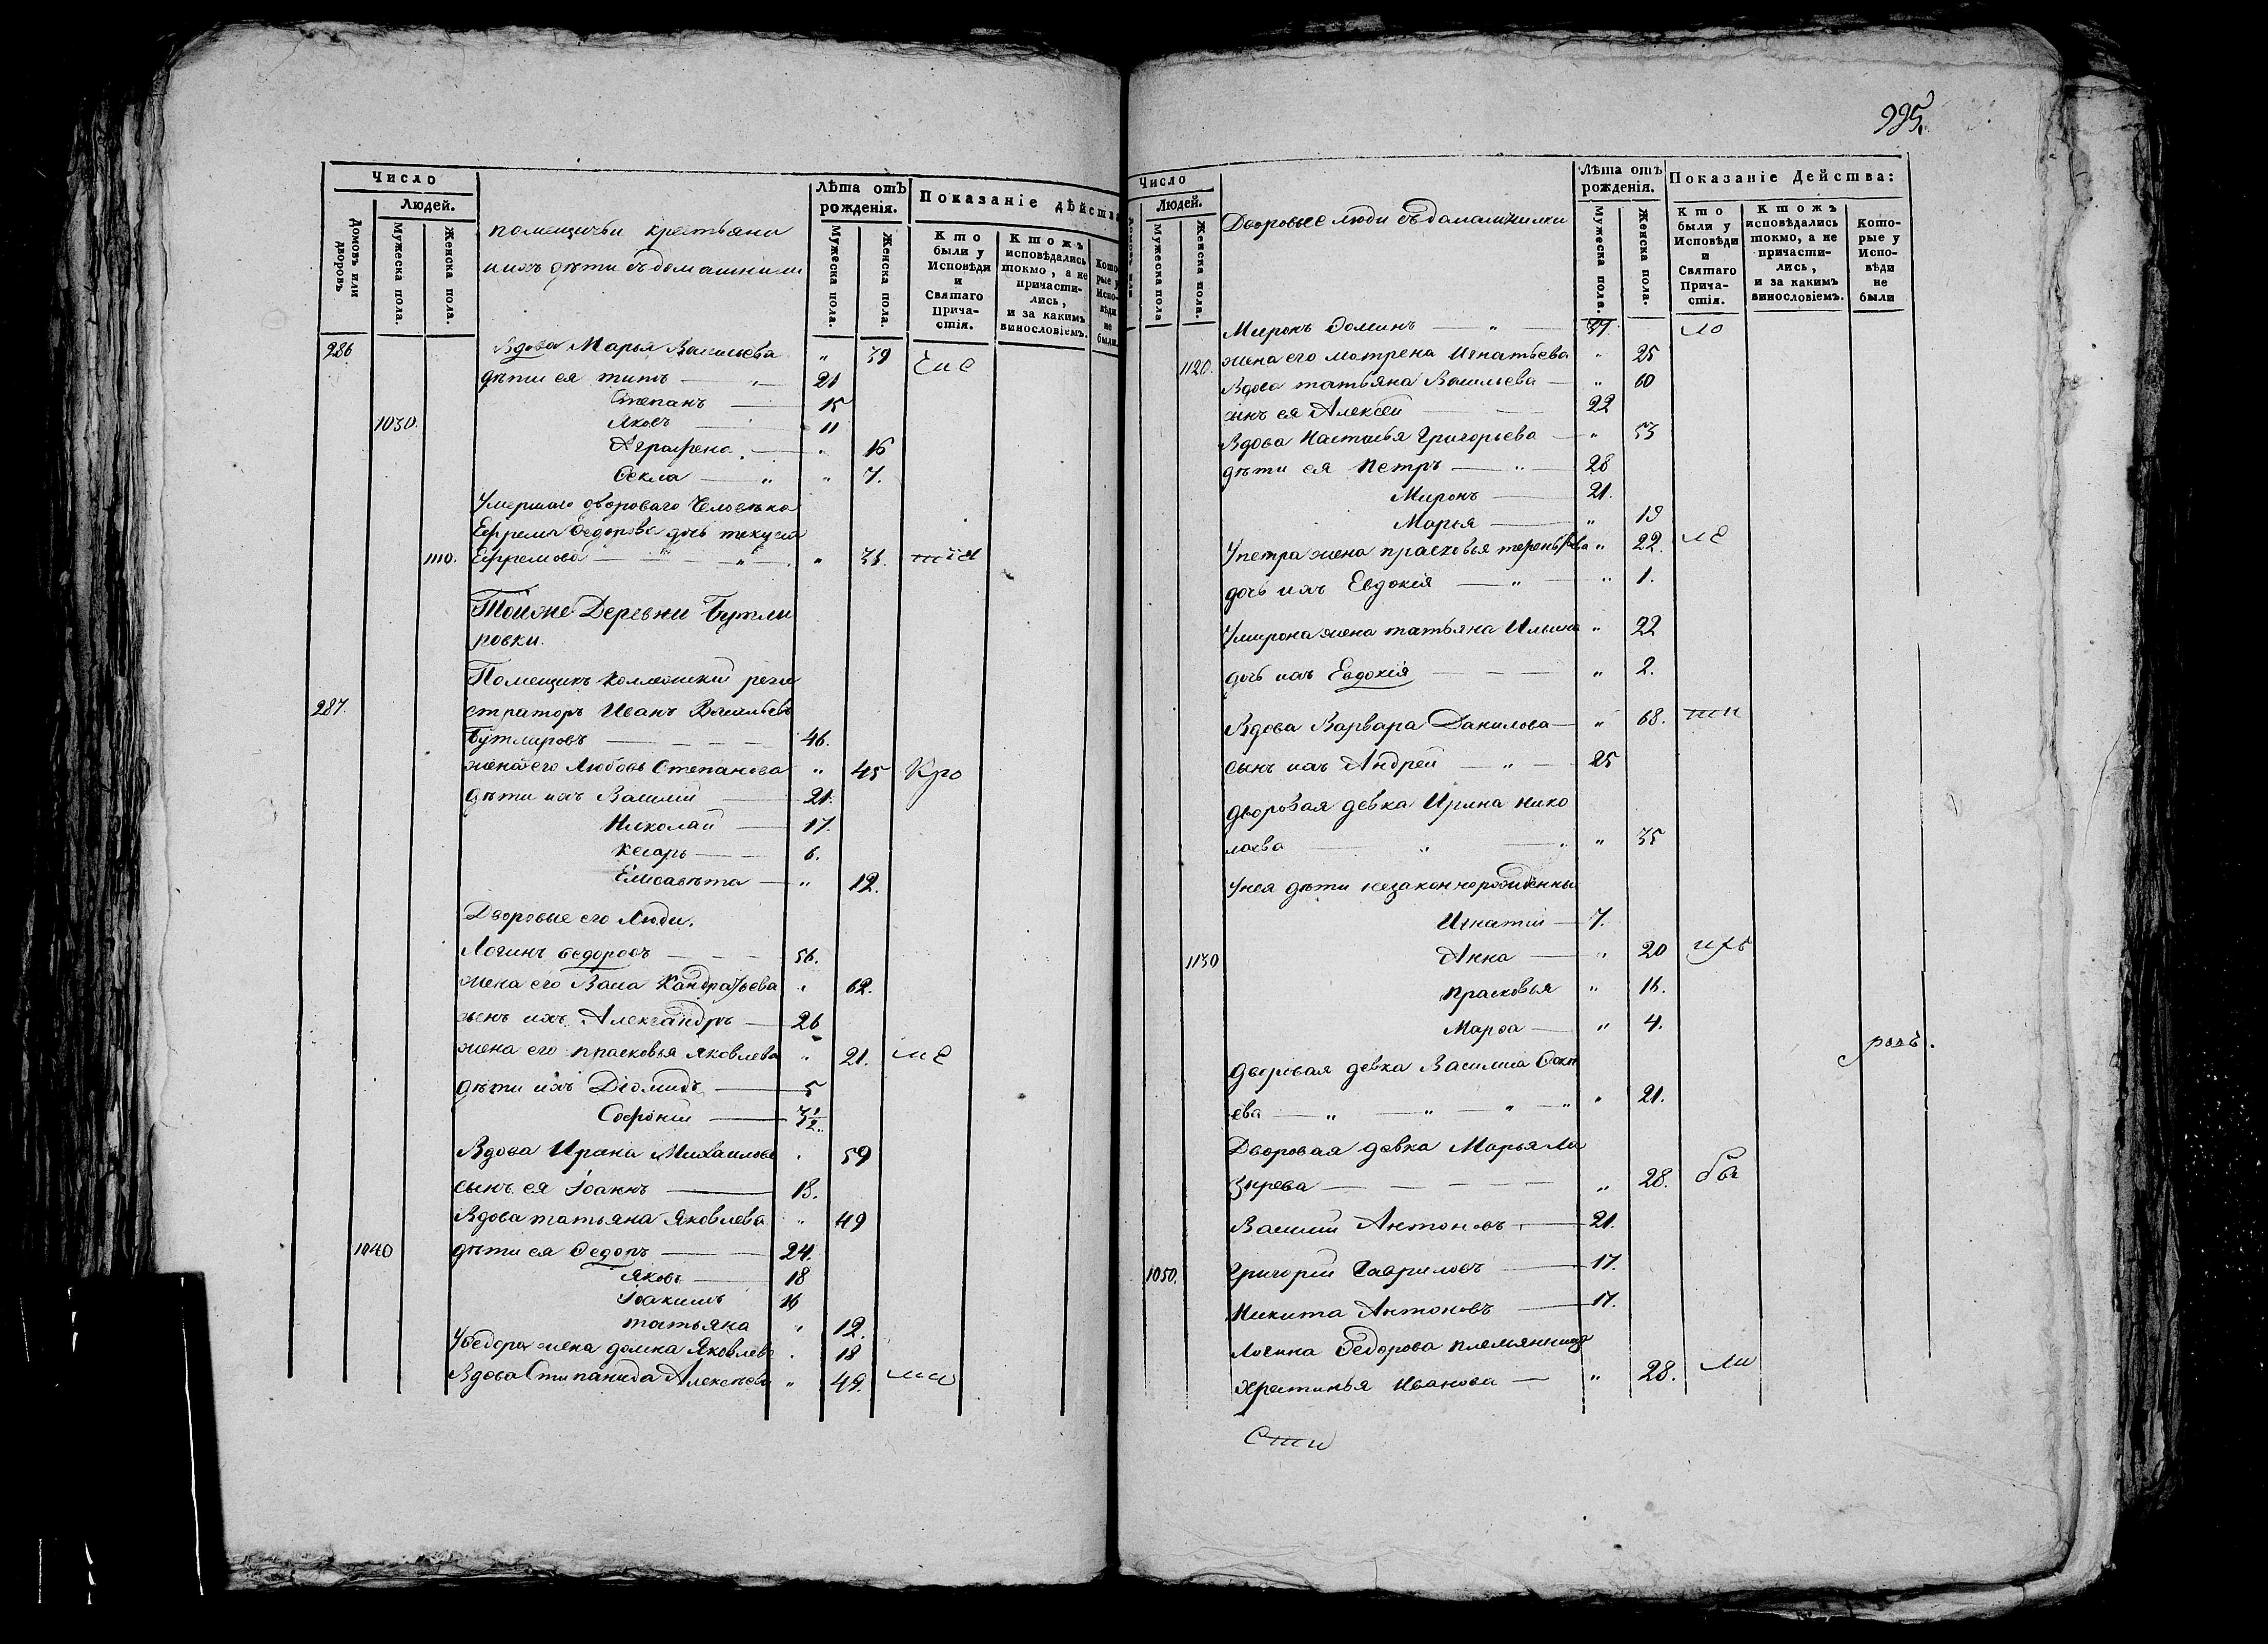 Число
Людей.
Домовъ или дворовъ.
Мужеска пола.
Женска пола.
помещичьи крестьяни
и ихъ дѣти съ домашними
Лѣта отъ рожденія.
Мужеска пола.
Женска пола.
Показаніе дѣйства
Кто были у Исповѣди и Святаго Прича-стія.
Ктожъ исповѣдались токмо, а не причасти-лись, и за какимъ винословіемъ.
Кото-рые у Испо-вѣди не были.
286 Вдова Марья Васильева " 39
дѣти ея титъ — " 21
Степанъ — 15
1030. Яковъ — 11
Аграфена — " 16
Ѳекла — " " 7.
Умершаго двороваго Человѣка
Ефрема Ѳедорова дочь
1110. Ефремова — " — " 31.
Тойже Деревни Бутле
ровки.
Помещикъ коллежскій реги
287. страторъ Иванъ Васильевъ
Бутлировъ — — — — 46.
жена его Любовь Степанова " 45
дѣти ихъ Василій — 21.
Николай — 17.
Кесарь — — 6.
Елисавѣта — " 12.
Дворовые его Люди.
Логинъ Ѳедоровъ — — — 56.
жена его Васа Кандратьева " 62.
сынъ ихъ Александръ — 26
жена его прасковья Яковлева " 21.
дѣти ихъ Діомидъ — 5
Софроній — 3 1/2
Вдова Ирина Михаилова " 59
сынъ ея Іоаннъ — 18.
Вдова татьяна Яковлева " 49
1040 дѣти ея Ѳедоръ — — 24.
Яковъ — 18
Іоакимъ 16
татьяна " 12.
У Ѳедора жена домна Яковлева " 18
Вдова Стипанида Алексѣева " 49.
995.
Число
Людей.
Мужеска пола
Женска пола.
Дворовые люди съ домашними
Лѣта отъ рожденія.
Мужеска пола.
Женска пола.
Показаніе Действа:
Кто были у Исповѣди и Святаго Прича-стія.
Ктожъ исповѣдались токмо, а не причасти-лись, и за какимъ винословіемъ.
Кото-рые у Испо-вѣди не были
Миронъ Ѳоминъ — " — 37.
1120. жена его матрена Игнатьева " 25
Вдова татьяна Васильева — " 60
сынъ ея Алексѣй — — 22
Вдова Настасья Григорьева — " 53
дѣти ея Петръ — " — 28
Миронъ — 21.
Марья — " 19
У петра жена прасковья терентьева " 22.
дочь ихъ Евдокія — " — " 1.
У мирона жена татьяна Ильина " 22
дочь ихъ Евдокія — — — " 2.
Вдова Варвара Данилова — " 68.
сынъ ихъ Андрей — " — 25
дворовая девка Ирина нико
лаева — " — " " 35
У нея дѣти незаконнорожденны
Игнатій — 7.
1130 Анна — " 20
прасковья " 16.
Марѳа — " 4.
дворовая девка Василиса
ева — " — " — " — " " 21.
Дворовая девка Марья Ла
зирева — — — — — " 28.
Василій Антоновъ — 21.
1050. Григорій Гавриловъ — 17.
Никита Антоновъ — 17.
Логина Ѳедорова племянница
Христинья Иванова — " 28.